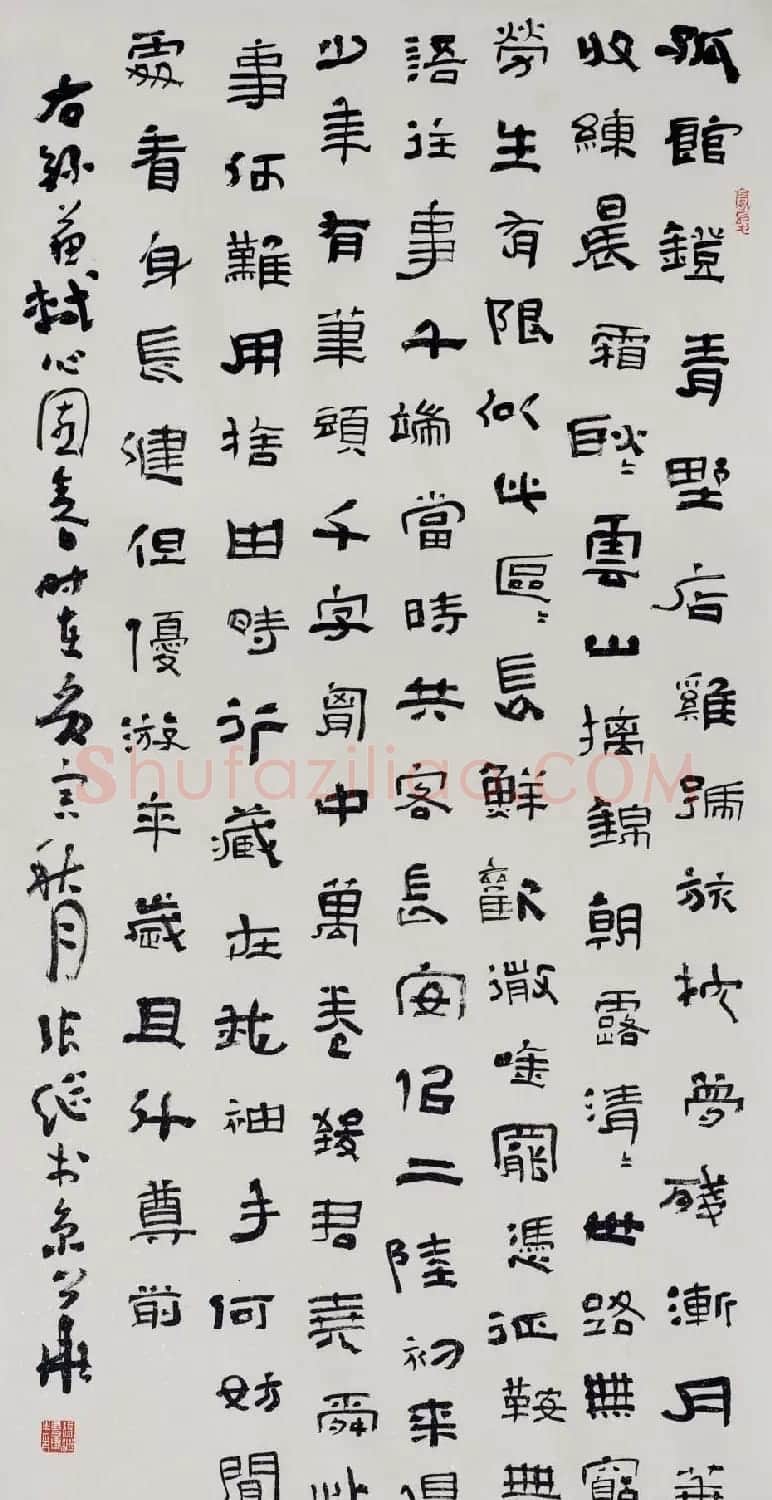 孤館鐙青野店雞號旅枕夢殘漸月華
收練晨霜耿〻雲山摛錦朝露清〻世路無窮
勞生有限似此區〻長鮮歡微唫罷憑征鞍無
語往事千端當時共客長安似二陸初來俱
少年有筆頭千字胷中萬卷致君堯舜此
事何難用捨由時行藏在我袖手何妨閒
處看身長健但優游卒歲且鬥尊前
右錄蘇軾沁園春時在秋月張繼書京華
Shufaziliao.COM